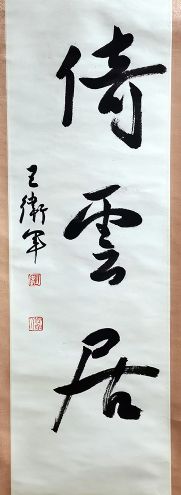 倚雲居
王衛軍